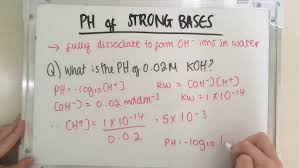 PH of STRONG BASES
→ fully dissociate to form OH⁻ ions in water
Q) What is the PH of 0.02M KOH?
PH=-log₁₀[H⁺] KW = [OH⁻][H⁺]
[OH⁻] = 0.02 moldm⁻³ KW = 1×10⁻¹⁴
∴ [H⁺] = 1×10⁻¹⁴ / 0.02 = 5×10⁻¹³
PH=-log₁₀ (